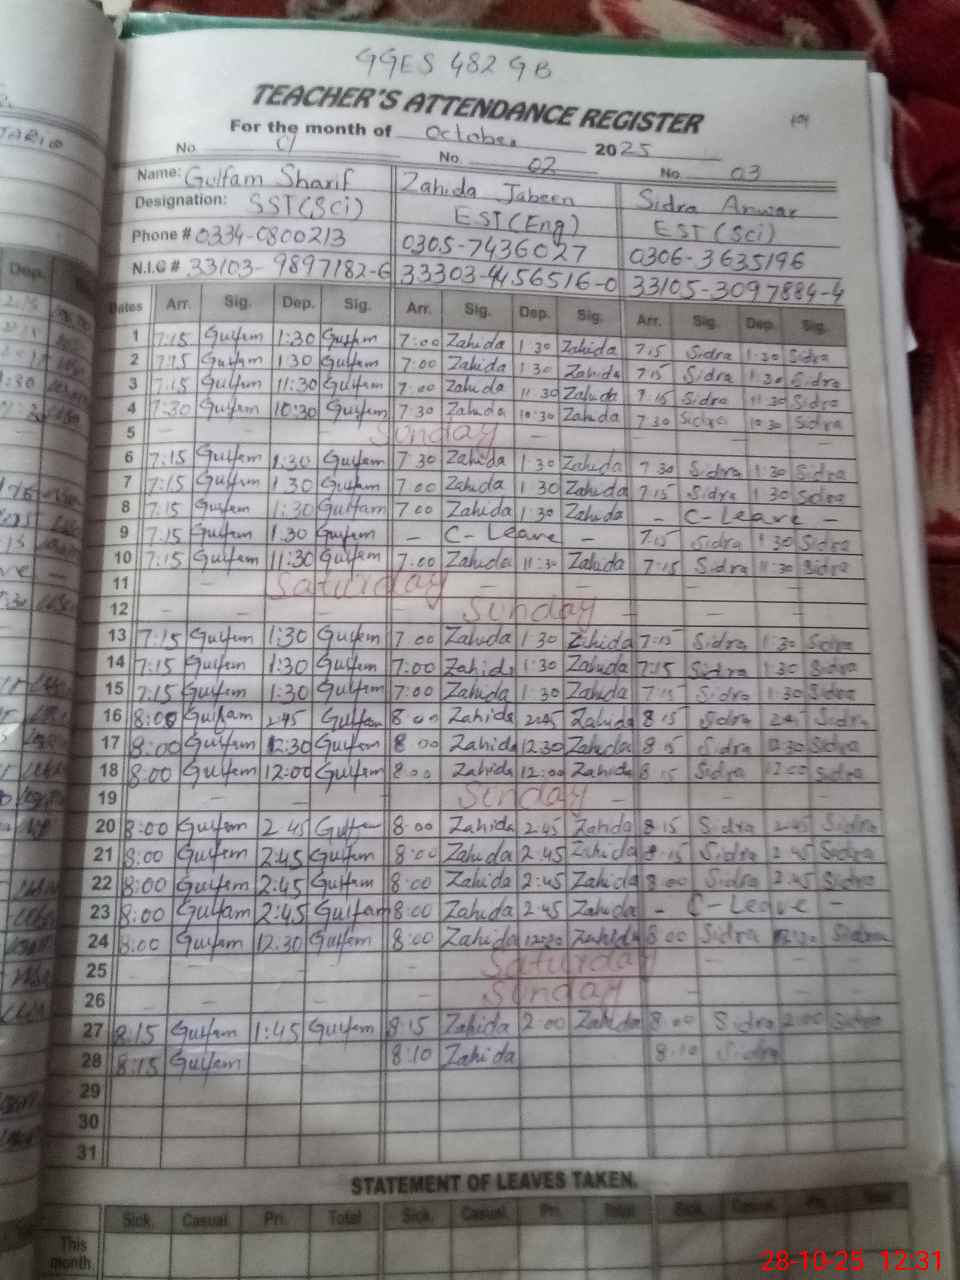 GGES 482 GB
TEACHER'S ATTENDANCE REGISTER
For the month of October 2025
No. 01 No. 02 No. 03
Name: Gulfam Sharif Zahida Jabeen Sidra Anwar
Designation: SST(Sci) EST(Eng) EST(Sci)
Phone # 0334-0800213 0305-7436027 0306-3635196
N.I.C # 33103-9897182-6 33303-4456516-0 33105-3097884-4
Dates Arr. Sig. Dep. Sig. Arr. Sig. Dep. Sig. Arr. Sig. Dep. Sig.
1 7:15 Gulfam 1:30 Gulfam 7:00 Zahida 1 30 Zahida 7 15 Sidra 1:30 Sidra
2 7:15 Gulfam 1 30 Gulfam 7:00 Zahida 1 30 Zahida 7 15 Sidra 1:30 Sidra
3 7:15 Gulfam 11:30 Gulfam 7:00 Zahida 11 30 Zahida 7:15 Sidra 11 30 Sidra
4 7:30 Gulfam 10:30 Gulfam 7 30 Zahida 10:30 Zahida 7 30 Sidra 10 30 Sidra
5 - - - Sunday - - -
6 7:15 Gulfam 1:30 Gulfam 7 30 Zahida 1 30 Zahida 7 30 Sidra 1:30 Sidra
7 7:15 Gulfam 1 30 Gulfam 7 00 Zahida 1 30 Zahida 7:15 Sidra 1 30 Sidra
8 7:15 Gulfam 1:30 Gulfam 7.00 Zahida 1:30 Zahida - C-Leave -
9 7:15 Gulfam 1.30 Gulfam - C-Leave - 7:15 Sidra 1 30 Sidra
10 7:15 Gulfam 11:30 Gulfam 7.00 Zahida 11:30 Zahida 7:15 Sidra 11 30 Sidra
11 - - Saturday - - - -
12 - - - - Sunday - - -
13 7:15 Gulfam 1:30 Gulfam 7 00 Zahida 1 30 Zahida 7:15 Sidra 1:30 Sidra
14 7:15 Gulfam 1:30 Gulfam 7:00 Zahida 1:30 Zahida 7:15 Sidra 1 30 Sidra
15 7:15 Gulfam 1:30 Gulfam 7:00 Zahida 1:30 Zahida 7:15 Sidra 1:30 Sidra
16 8:00 Gulfam 2:45 Gulfam 8:00 Zahida 2:45 Zahida 8 15 Sidra 2:45 Sidra
17 8:00 Gulfam 12:30 Gulfam 8 00 Zahida 12:30 Zahida 8 15 Sidra 12:30 Sidra
18 8:00 Gulfam 12:00 Gulfam 8:00 Zahida 12:00 Zahida 8 15 Sidra 12:00 Sidra
19 - - - Sunday -
20 8:00 Gulfam 2 45 Gulfam 8:00 Zahida 2 45 Zahida 8:15 Sidra 2:45 Sidra
21 8:00 Gulfam 2:45 Gulfam 8:00 Zahida 2:45 Zahida 8:15 Sidra 2 45 Sidra
22 8:00 Gulfam 2:45 Gulfam 8:00 Zahida 2:45 Zahida 8:00 Sidra 2:45 Sidra
23 8:00 Gulfam 2:45 Gulfam 8:00 Zahida 2:45 Zahida - C-Leave -
24 8:00 Gulfam 12.30 Gulfam 8:00 Zahida 12:30 Zahida 8 00 Sidra 12:30 Sidra
25 - - - - - Saturday - -
26 - - - - Sunday - -
27 8:15 Gulfam 1:45 Gulfam 8:15 Zahida 2:00 Zahida 8:00 Sidra 2:00 Sidra
28 8:15 Gulfam 8:10 Zahida 8:10 Sidra
29
30
31
STATEMENT OF LEAVES TAKEN.
Sick. Casual. Pri. Total Sick. Casual. Pri. Total Sick. Casual. Pri. Total
This month
28-10-25 12:31